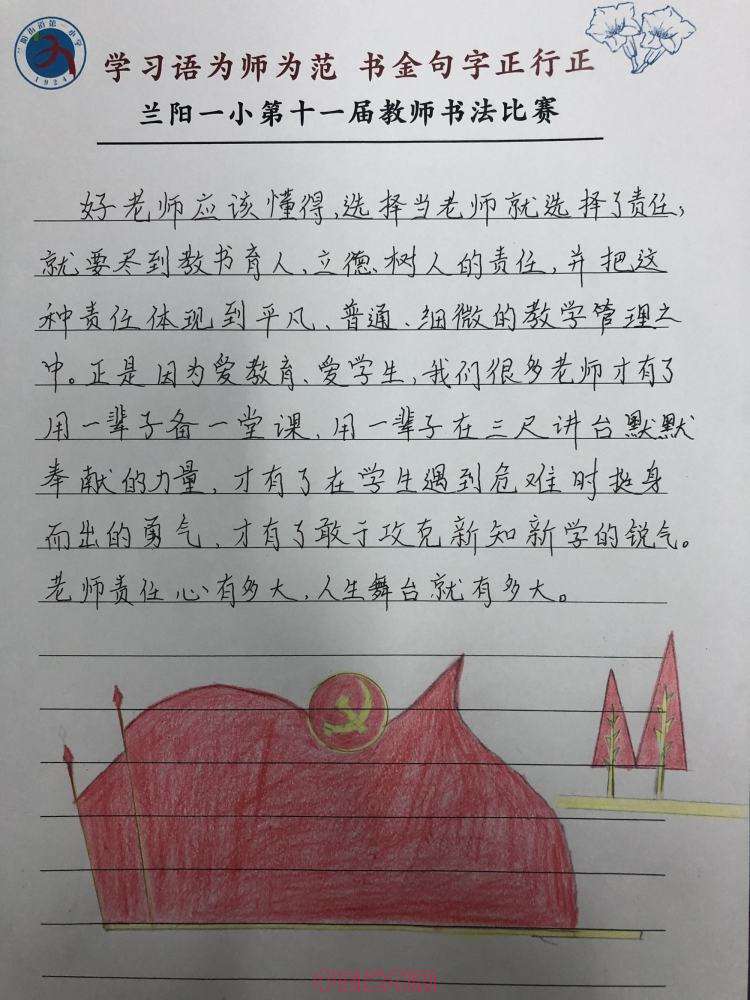 学习语为师为范 书金句字正行正
兰阳一小第十一届教师书法比赛
好老师应该懂得,选择当老师就选择了责任,
就要尽到教书育人、立德树人的责任,并把这
种责任体现到平凡、普通、细微的教学管理之
中。正是因为爱教育、爱学生,我们很多老师才有了
用一辈子备一堂课、用一辈子在三尺讲台默默
奉献的力量,才有了在学生遇到危难时挺身
而出的勇气,才有了敢于攻克新知新学的锐气。
老师责任心有多大,人生舞台就有多大。
1924